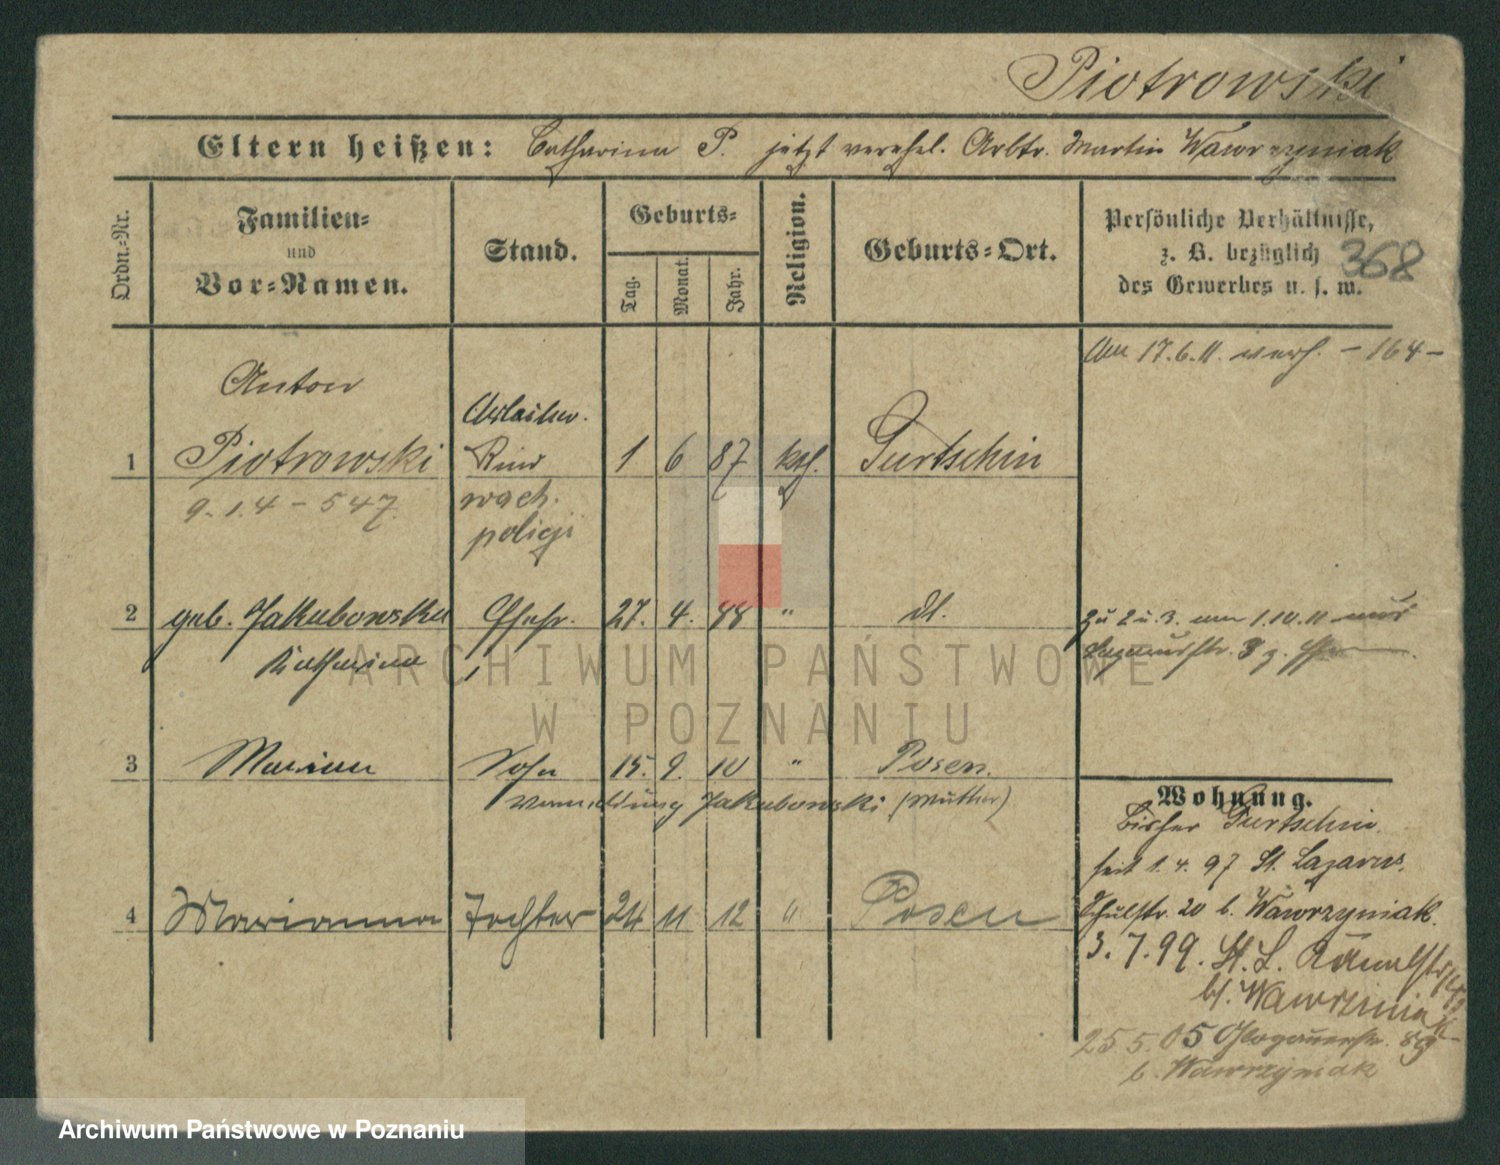 Piotrowski
Eltern heißen: Catharina P. jetzt verehel. Arbtr. Martin Wawrzyniak
Ordn.-Nr.
Familien-
und
Vor-Namen.
Stand.
Geburts-
Tag.
Monat.
Jahr.
Religion.
Geburts-Ort.
Persönliche Verhältnisse,
z. B. bezüglich
des Gewerbes u. s. w.
368
Am 17.6.11. verh. - 164 -
Anton
Arbeiter.
1 Piotrowski Kind 1 6 87 kth. Gurtschin
9.1.4 - 547.
wach.
policji
2 geb. Jakubowska Ehefr. 27. 4. 88 " dt.
Katharina
zu 2 u. 3. am 1.10.11
3 Marian Sohn 15. 9. 10 " Posen.
Jakubowski (Mutter)
4 Marianna Tochter 24 11 12 " Posen
Wohnung.
bisher Gurtschin.
seit 1.4.97 St. Lazarus.
Schulstr. 20 b. Wawrzyniak.
3.7.99. St. L.
bf. Wawrziniak
25.5.05 Glogauerstr. 89
b. Wawrzyniak
ARCHIWUM PAŃSTWOWE
W POZNANIU
Archiwum Państwowe w Poznaniu